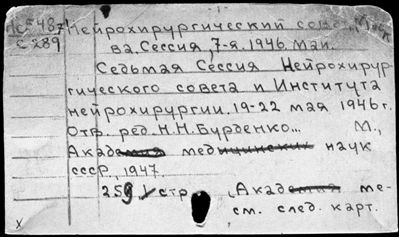 Нейрохирургический совет, Моск-
ва. Сессия 7-я. 1946. Май.
С 289
Седьмая Сессия Нейрохирур-
гического совета и Института
нейрохирургии. 19-22 мая 1946 г.
Отв. ред. Н.Н. Бурденко... М.,
Академия медицинских наук
СССР, 1947.
259 стр. (Академия ме-
см. след. карт.
x